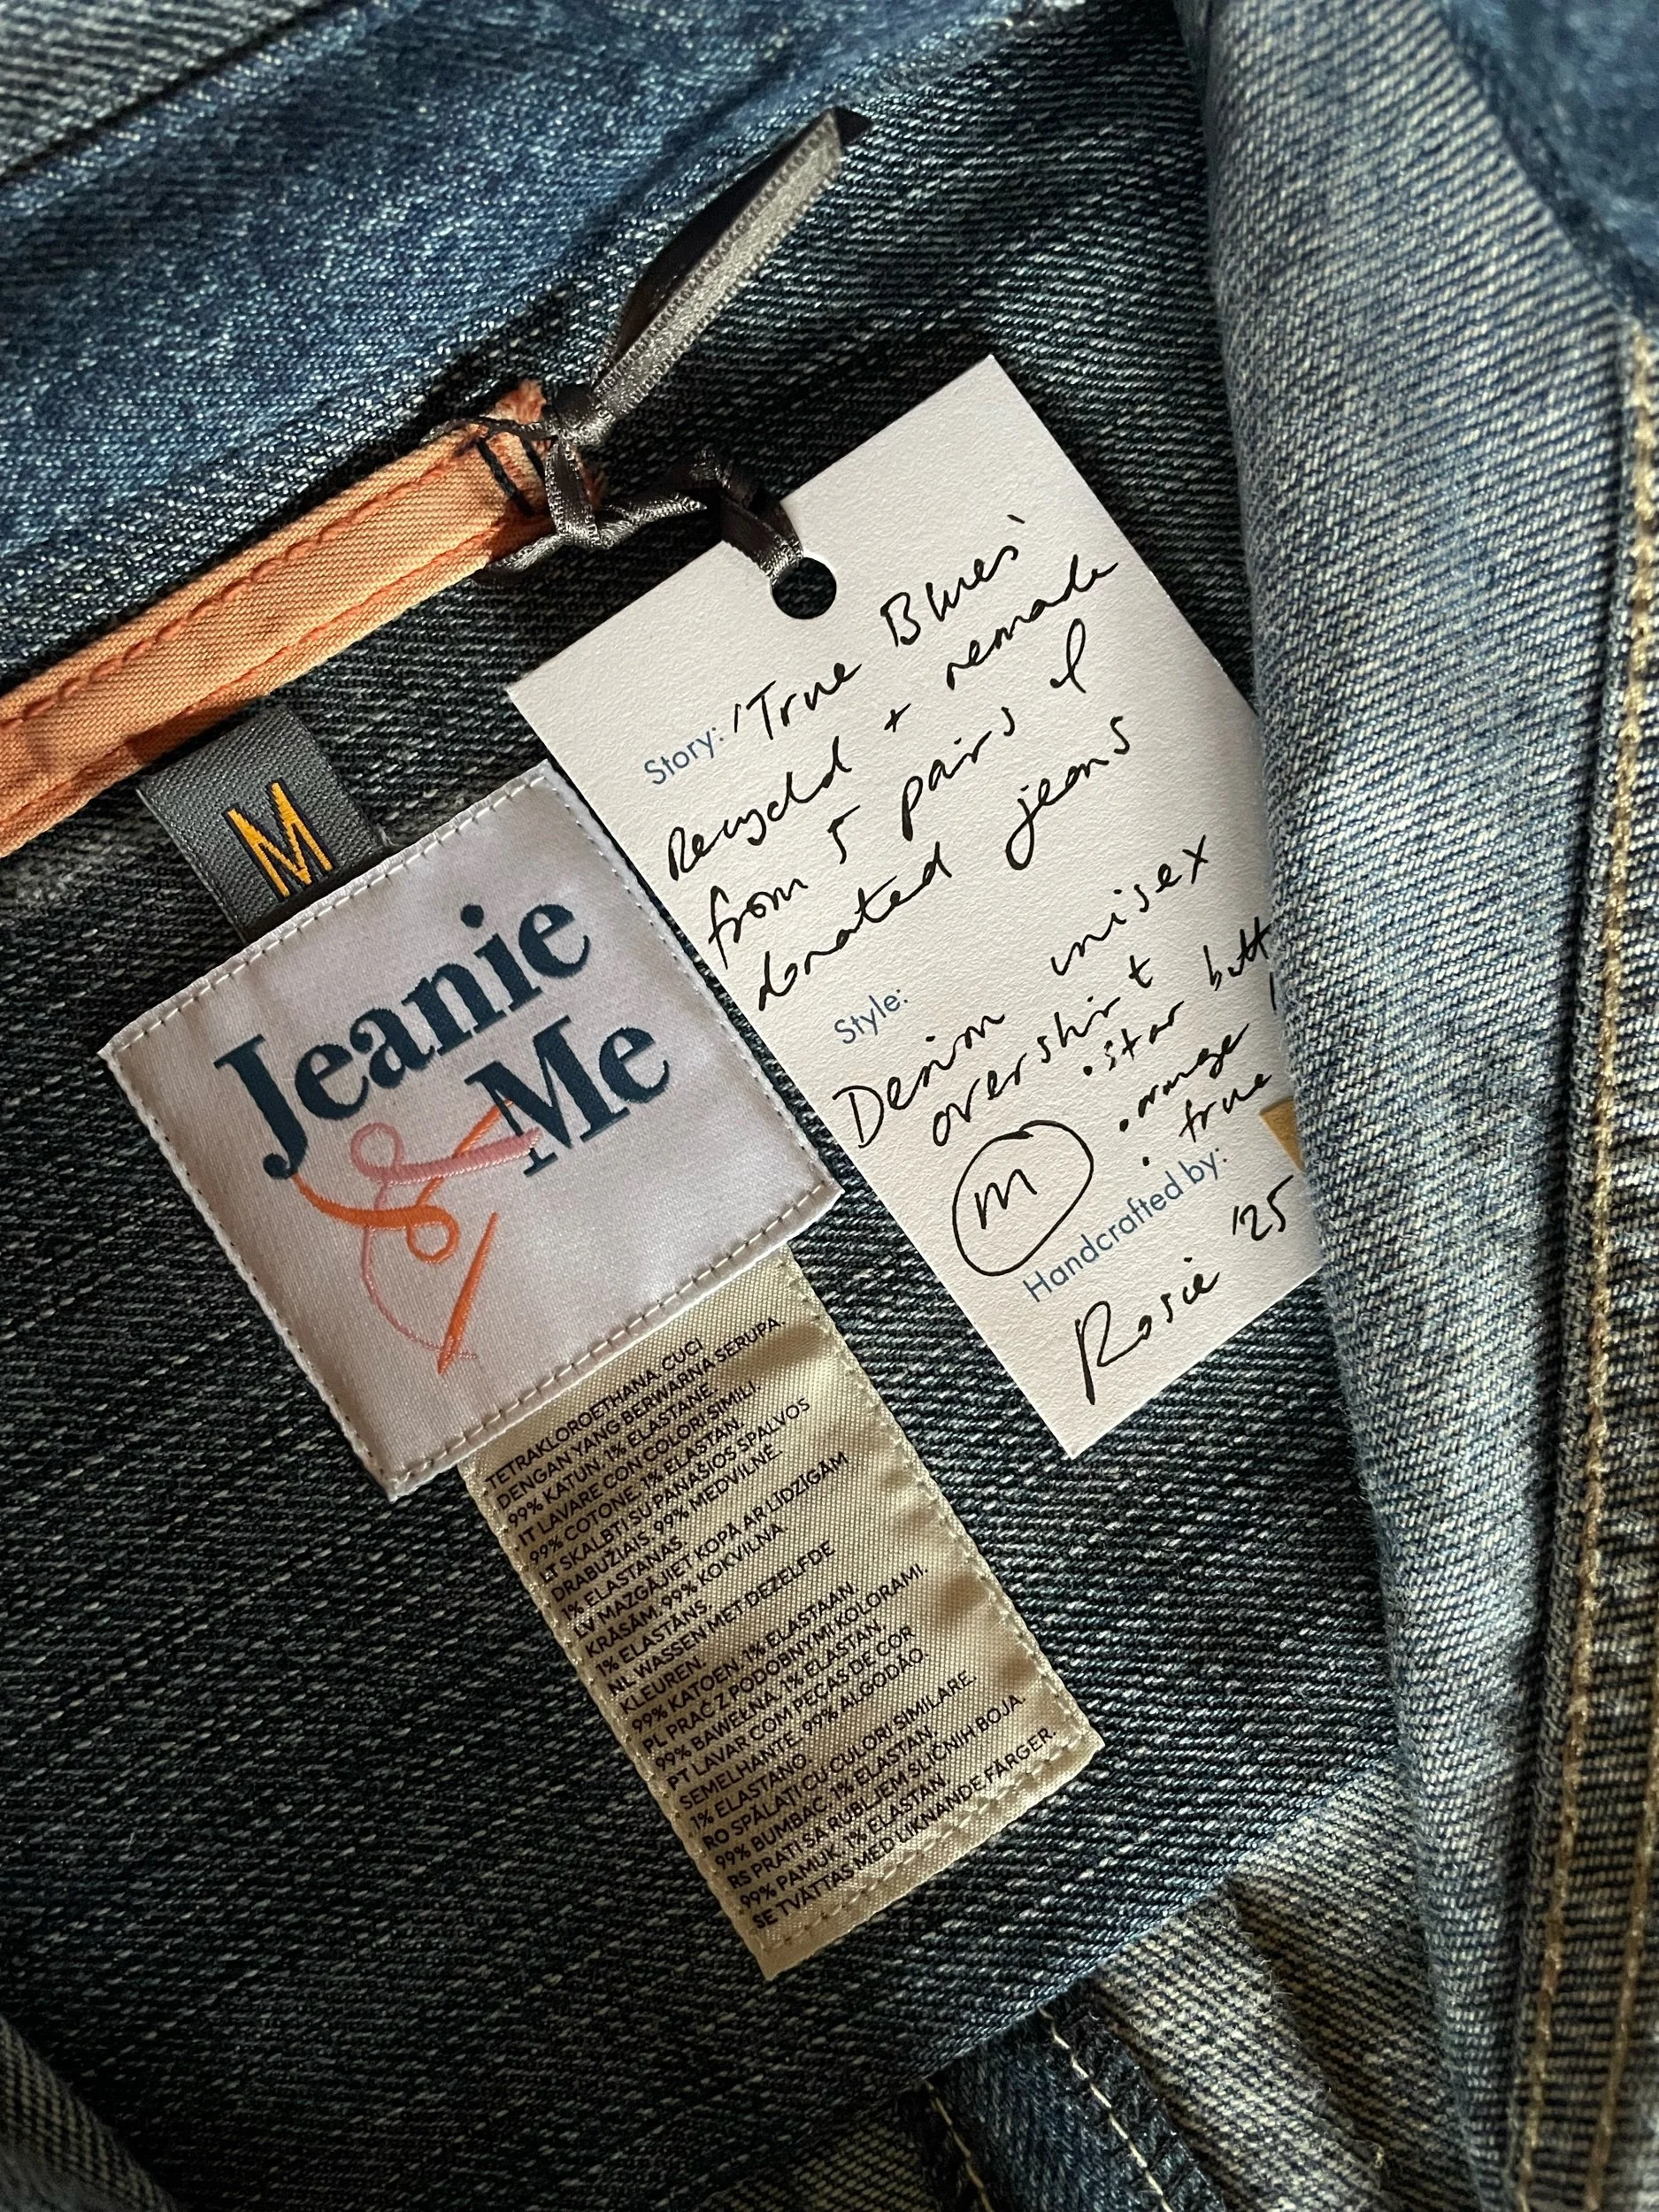 M
Jeanie
& Me
Story: 'True Blues'
Recycled + remade
from 5 pairs of
donated jeans
Style:
Denim unisex
overshirt
• star butt
• orange
• true
M
Handcrafted by:
Rosie '25
TETRAKLOROETHANA. CUCI
DENGAN YANG BERWARNA SERUPA.
99% KATUN, 1% ELASTANE.
IT LAVARE CON COLORI SIMILI.
99% COTONE, 1% ELASTAN.
LT SKALBTI SU PANAŠIOS SPALVOS
DRABUŽIAIS. 99% MEDVILNĖ
1% ELASTANAS.
LV MAZGĀJIET KOPĀ AR LĪDZĪGĀM
KRĀSĀM. 99% KOKVILNA.
1% ELASTĀNS.
NL WASSEN MET DEZELFDE
KLEUREN.
99% KATOEN, 1% ELASTAAN.
PL PRAĆ Z PODOBNYMI KOLORAMI.
99% BAWEŁNA, 1% ELASTAN.
PT LAVAR COM PEÇAS DE COR
SEMELHANTE. 99% ALGODÃO.
1% ELASTANO.
RO SPĂLAȚI CU CULORI SIMILARE.
99% BUMBAC, 1% ELASTAN.
RS PRATI SA RUBLJEM SLIČNIH BOJA.
99% PAMUK, 1% ELASTAN.
SE TVÄTTAS MED LIKNANDE FÄRGER.